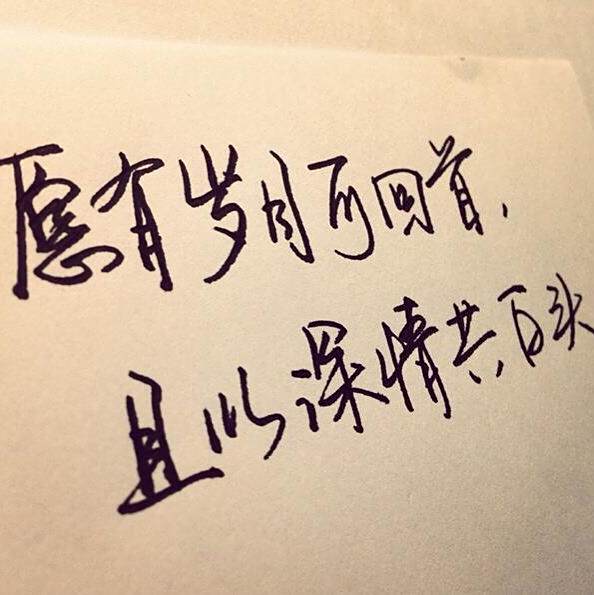 愿有岁月可回首,
且以深情共百头